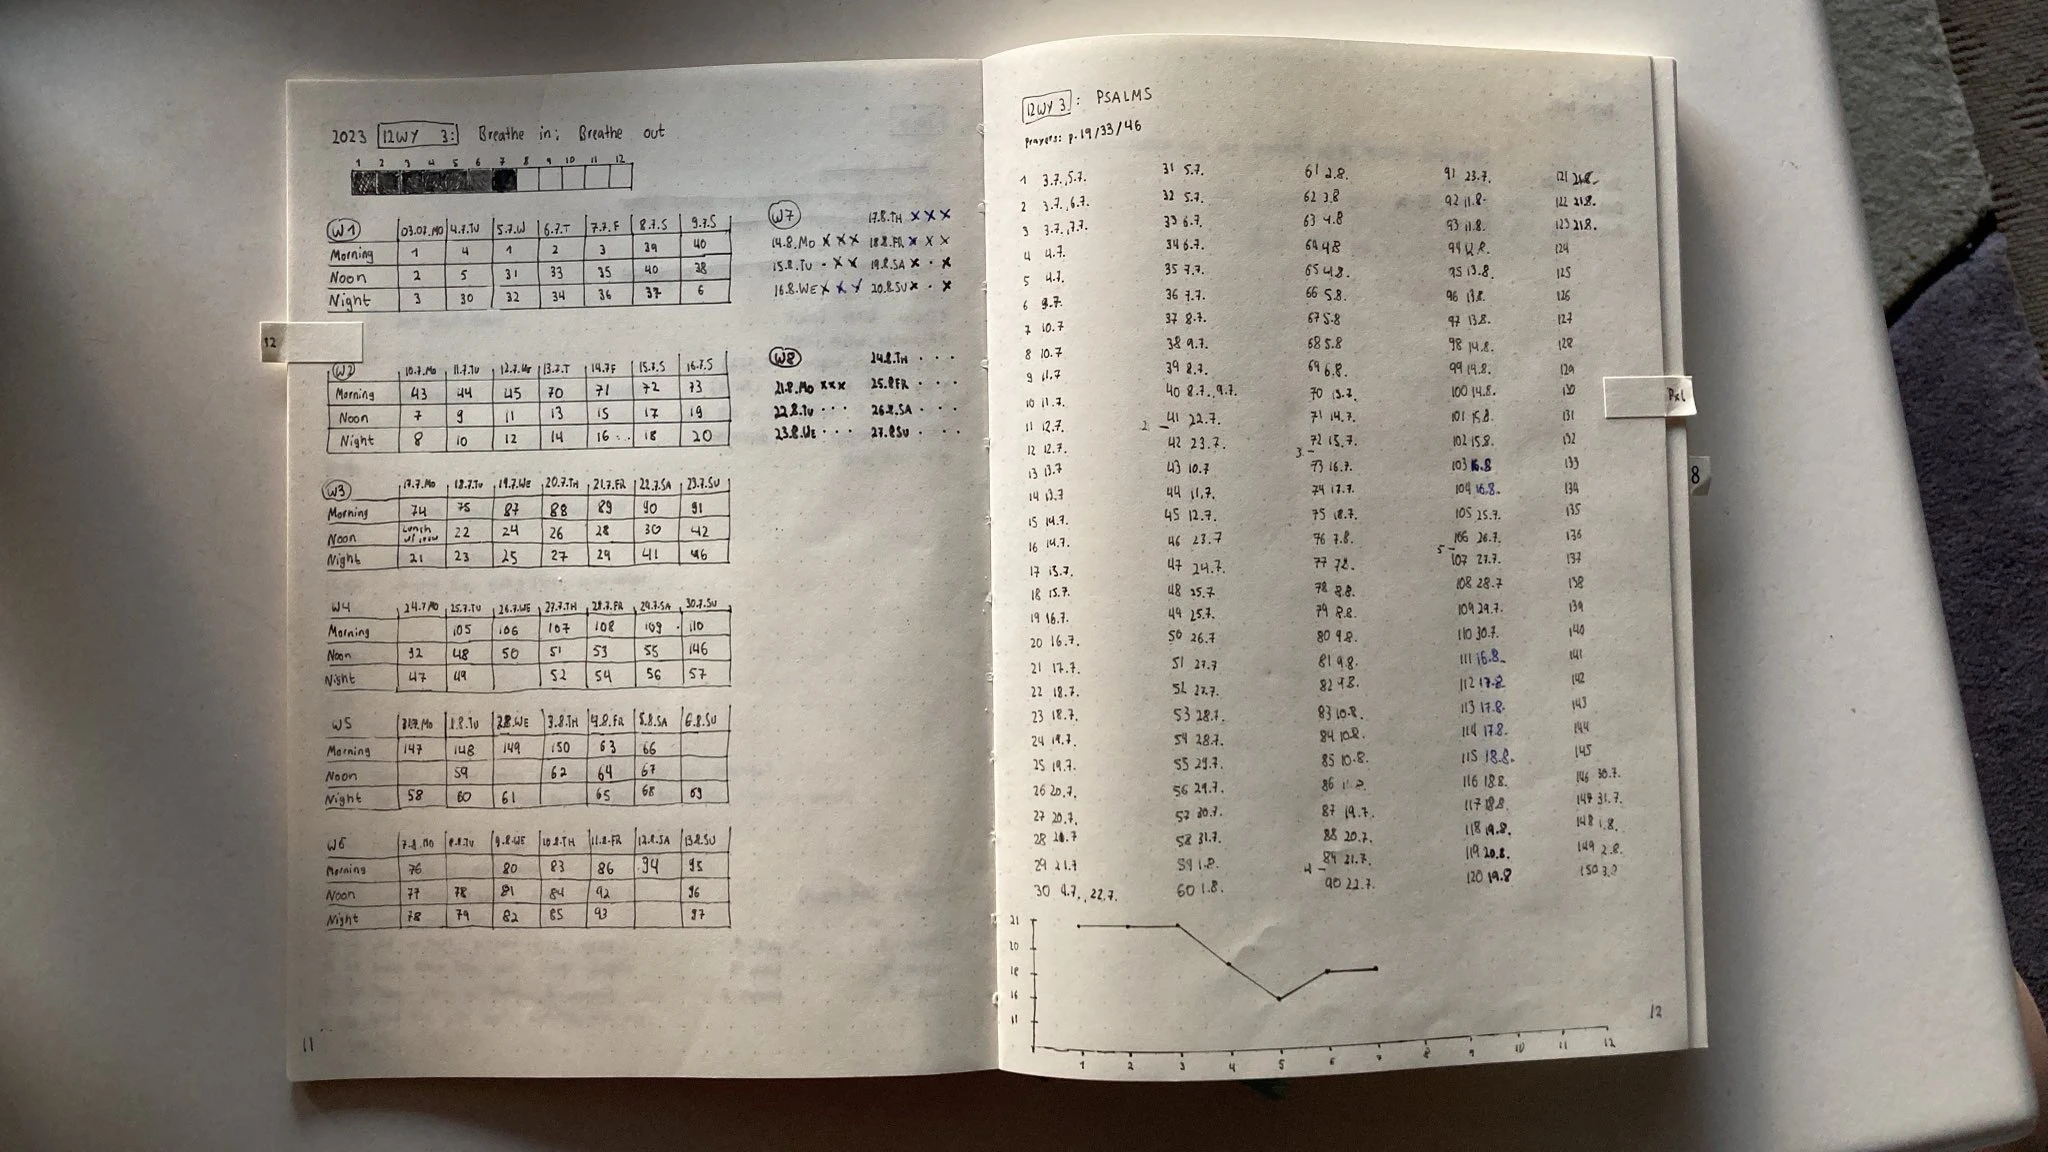 2023 12WY 3: Breathe in; Breathe out
1 2 3 4 5 6 7 8 9 10 11 12
W1 03.07.MO 4.7.TU 5.7.W 6.7.T 7.7.F 8.7.S 9.7.S
Morning 1 4 1 2 3 39 40
Noon 2 5 31 33 35 40 38
Night 3 30 32 34 36 37 6
12
W2 10.7.MO 11.7.TU 12.7.WE 13.7.T 14.7F 15.7.S 16.7.S
Morning 43 44 45 70 71 72 73
Noon 7 9 11 13 15 17 19
Night 8 10 12 14 16 18 20
W3 17.7.MO 18.7.TU 19.7.WE 20.7.TH 21.7.FR 22.7.SA 23.7.SU
Morning 74 75 87 88 89 90 91
Noon Lunch 22 24 26 28 30 42
Night 21 23 25 27 29 41 46
W4 24.7 MO 25.7.TU 26.7.WE 27.7.TH 28.7.FR 29.7.SA 30.7.SU
Morning 105 106 107 108 109 110
Noon 92 48 50 51 53 55 146
Night 47 49 52 54 56 57
W5 31.7.MO 1.8.TU 2.8.WE 3.8.TH 4.8.FR 5.8.SA 6.8.SU
Morning 147 148 149 150 63 66
Noon 59 62 64 67
Night 58 60 61 65 68 69
W6 7.8.MO 8.8.TU 9.8.WE 10.8.TH 11.8.FR 12.8.SA 13.8.SU
Morning 76 80 83 86 94 95
Noon 77 78 81 84 92 96
Night 78 79 82 85 93 97
W7 17.8.TH x x x
14.8.MO x x x 18.8.FR x x x
15.8.TU · x x 19.8.SA x · x
16.8.WE x x x 20.8.SU x · x
W8 24.8.TH · · ·
21.8.MO x x x 25.8.FR · · ·
22.8.TU · · · 26.8.SA · · ·
23.8.WE · · · 27.8.SU · · ·
11
12WY 3: PSALMS
Prayers: p.19/33/46
1 3.7.,5.7.
2 3.7.,6.7.
3 3.7.,7.7.
4 4.7.
5 4.7.
6 9.7.
7 10.7
8 10.7
9 11.7
10 11.7.
11 12.7.
12 12.7.
13 13.7
14 13.7
15 14.7.
16 14.7.
17 15.7.
18 15.7.
19 16.7.
20 16.7.
21 17.7.
22 18.7.
23 18.7.
24 19.7.
25 19.7.
26 20.7.
27 20.7.
28 21.7
29 21.7
30 4.7., 22.7.
31 5.7.
32 5.7.
33 6.7.
34 6.7.
35 7.7.
36 7.7.
37 8.7.
38 9.7.
39 8.7.
40 8.7., 9.7.
2. 41 22.7.
42 23.7.
43 10.7
44 11.7.
45 12.7.
46 23.7
47 24.7.
48 25.7
49 25.7.
50 26.7
51 27.7
52 27.7.
53 28.7.
54 28.7.
55 29.7.
56 29.7.
57 30.7.
58 31.7.
59 1.8.
60 1.8.
61 2.8.
62 3.8
63 4.8
64 4.8
65 4.8.
66 5.8.
67 5.8
68 5.8
69 6.8.
70 13.7.
71 14.7.
72 15.7.
3. 73 16.7.
74 17.7.
75 18.7.
76 7.8.
77 7.8.
78 8.8.
79 8.8.
80 9.8.
81 9.8.
82 9.8.
83 10.8.
84 10.8.
85 10.8.
86
87 19.7.
88 20.7.
89 21.7.
4 90 22.7.
91 23.7.
92 11.8.
93 11.8.
94
95 13.8.
96 13.8.
97 13.8.
98 14.8.
99 14.8.
100 14.8.
101 15.8.
102 15.8.
103 16.8
104 16.8.
105 25.7.
106 26.7.
5 107 27.7.
108 28.7
109 29.7.
110 30.7.
111 16.8.
112 17.8
113 17.8.
114 17.8.
115 18.8.
116 18.8.
117 18.8.
118 19.8.
119 20.8.
120 19.8
121 21.8.
122 21.8.
123 21.8.
124
125
126
127
128
129
130
131
132
133
134
135
136
137
138
139
140
141
142
143
144
145
146 30.7.
147 31.7.
148 1.8.
149 2.8.
150
Psl
8
21
20
18
16
11
1 2 3 4 5 6 7 8 9 10 11 12
12